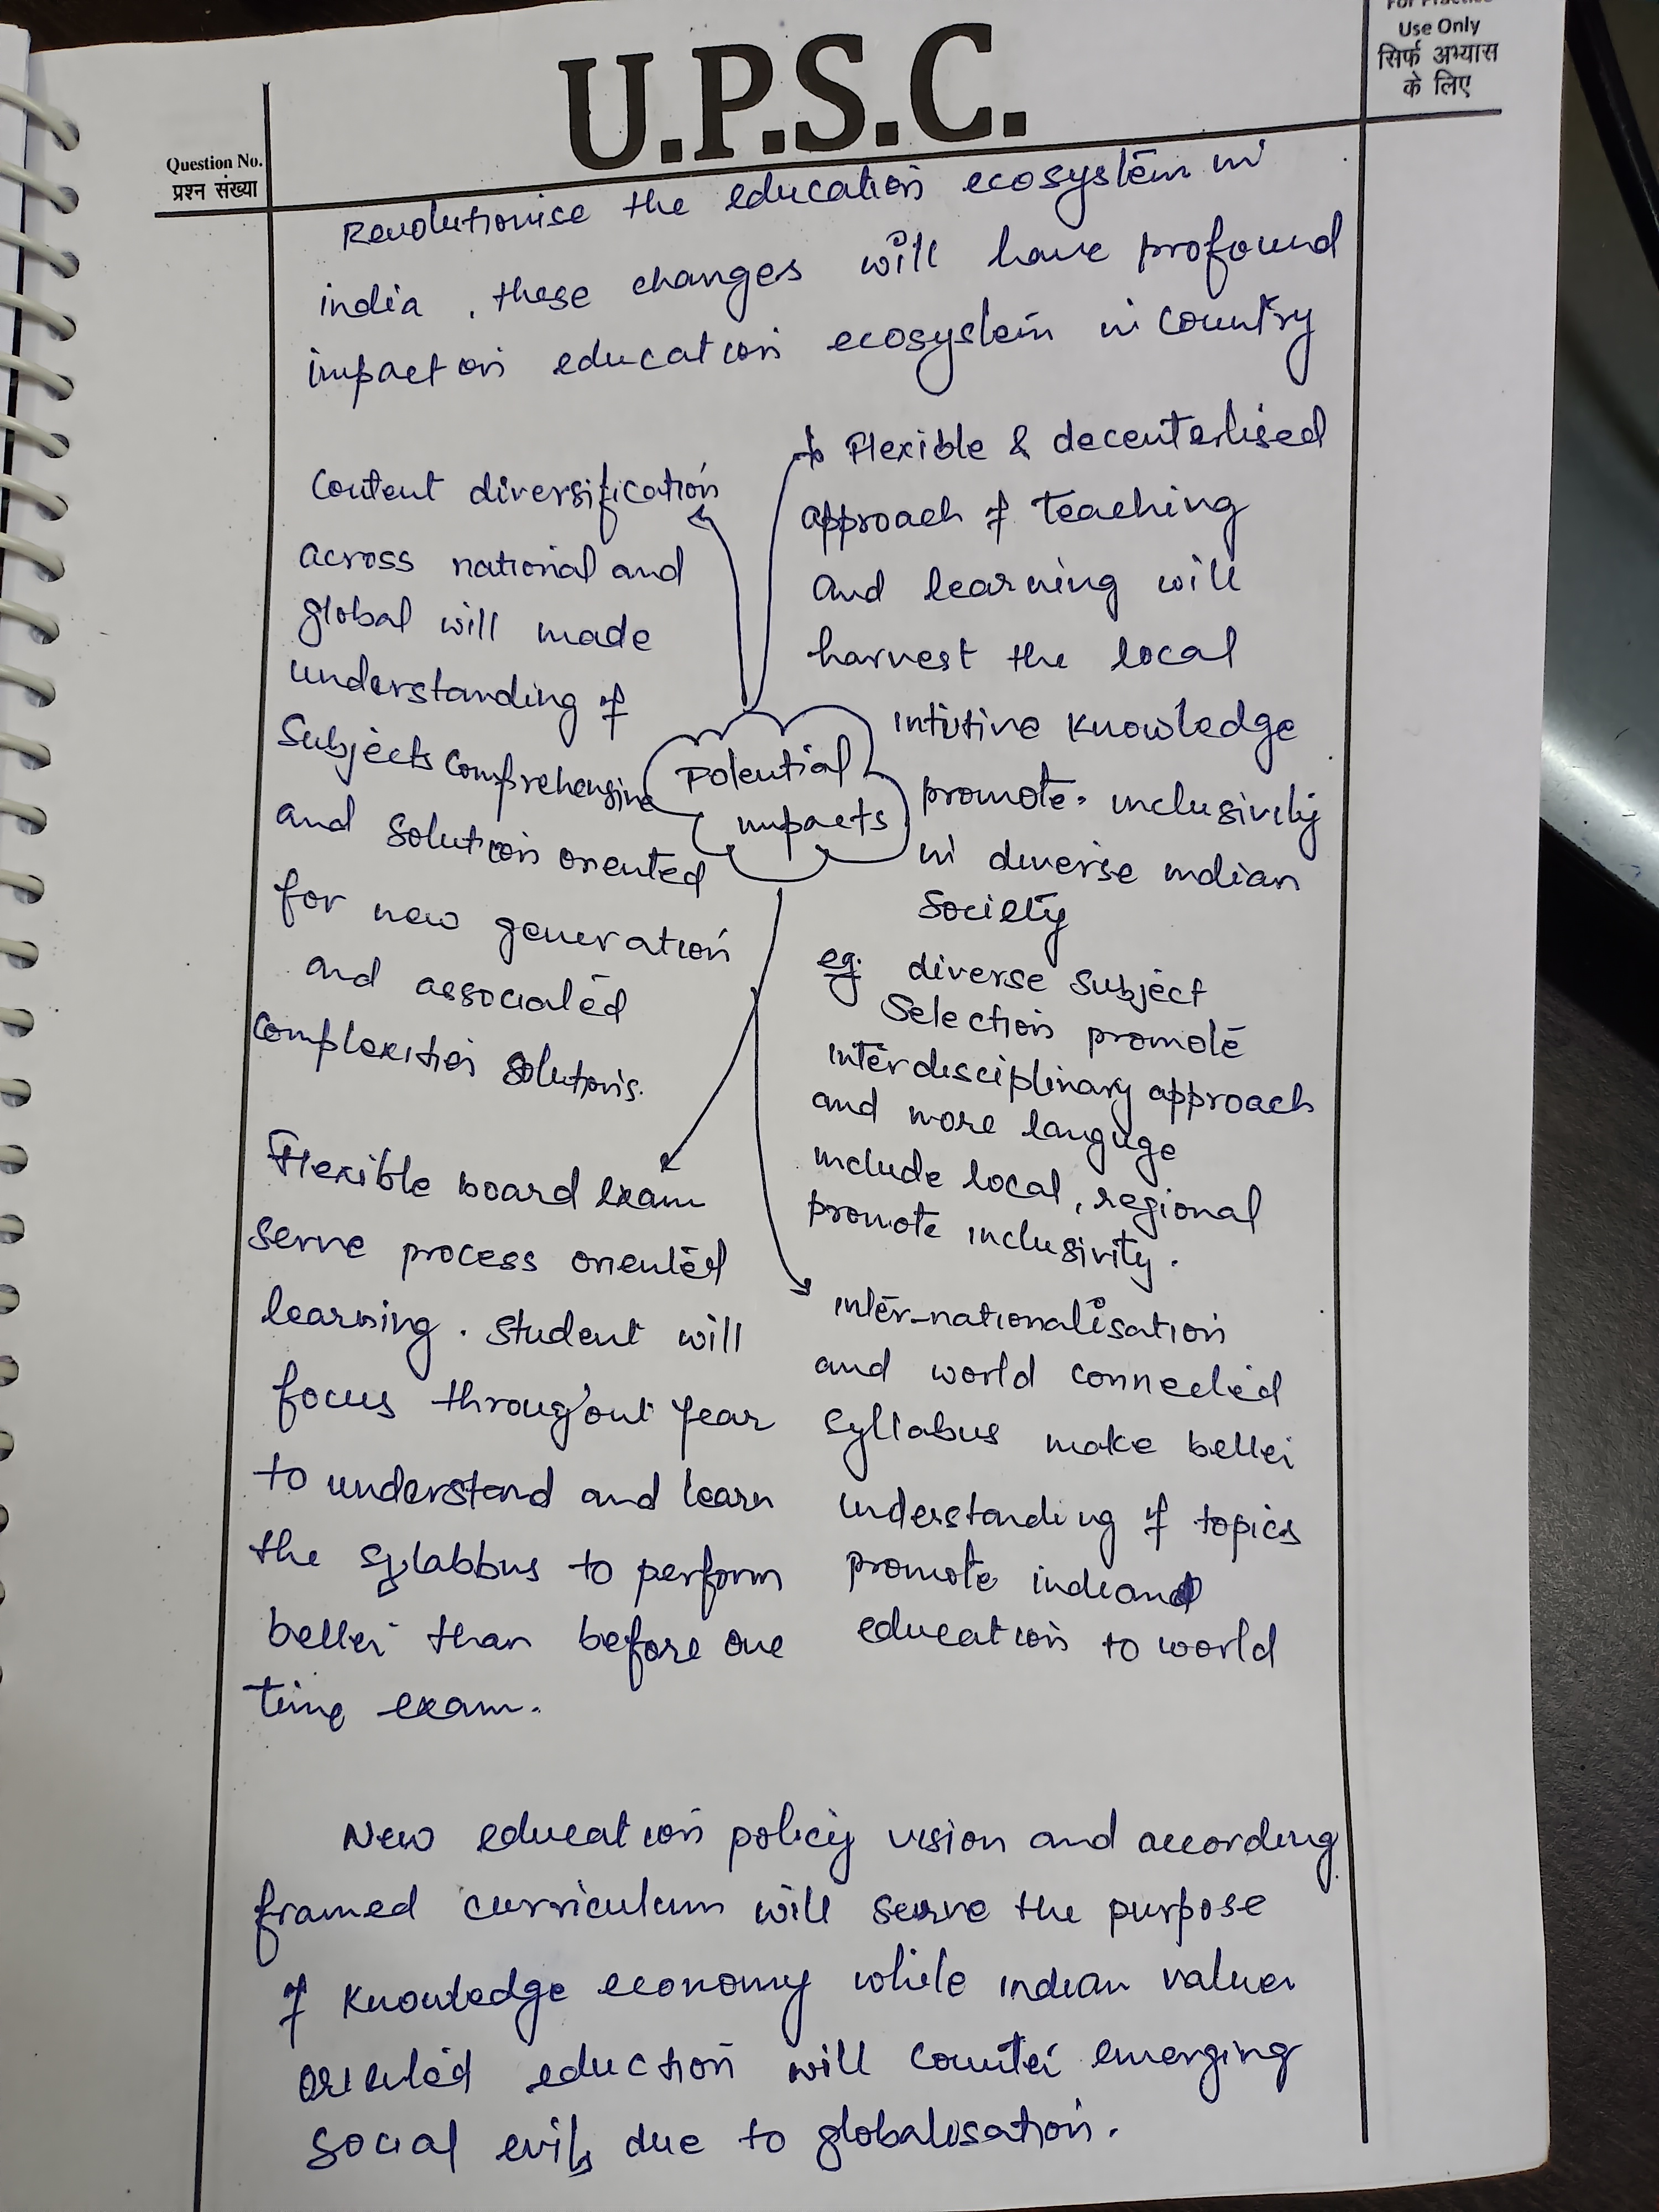 For Practice
Use Only
सिर्फ अभ्यास
के लिए
U.P.S.C.
Question No.
प्रश्न संख्या
Revolutionise the education ecosystem in
india, these changes will have profound
impact on education ecosystem in country
Content diversification
across national and
global will made
understanding of
Subjects Comprehensive
and solution oriented
for new generation
and associated
complexities solutions.
Flexible & decenterlised
approach of teaching
and learning will
harvest the local
intutive knowledge
promote inclusivity
in diverse indian
Society
eg. diverse subject
Selection promote
interdisciplinary approach
and more languge
include local, regional
promote inclusivity.
Potential
impacts
Flexible board exam
serve process oriented
learning. Student will
focus throughout year
to understand and learn
the sylabbus to perform
better than before one
time exam.
inter-nationalisation
and world connected
syllabus make better
understanding of topics
promote indian
education to world
New education policy vision and according
framed curriculum will serve the purpose
of knowledge economy while indian values
oriented eduction will counter emerging
social evils due to globalisation.